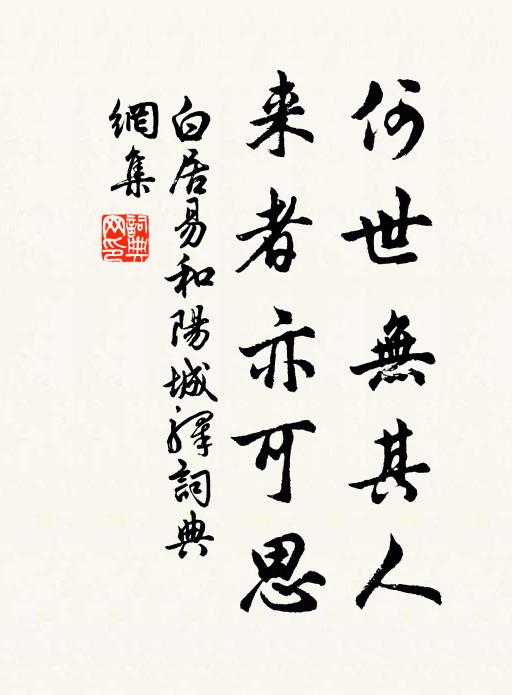 何世無其人
来者亦可思
白居易和陽城驛詞典
網集
詞典
网印